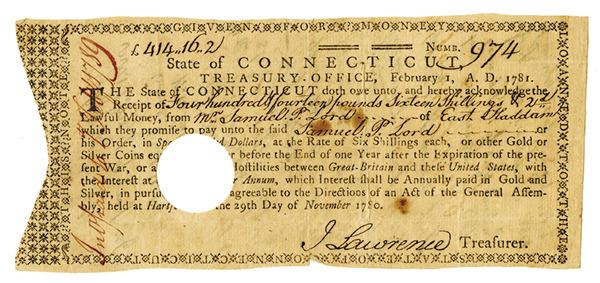 GIVEN FOR MONEY LOANED TO THE
£ 414..16..2
NUMB. 974
State of CONNECTICUT,
TREASURY-OFFICE, February 1, A. D. 1781.
THE State of CONNECTICUT doth owe unto, and hereby acknowledge the
Receipt of Four hundred fourteen pounds Sixteen Shillings & 2d
Lawful Money, from Mr. Samuel P. Lord of East Haddam
which they promise to pay unto the said Samuel P. Lord or
his Order, in Dollars, at the Rate of Six Shillings each, or other Gold or
Silver Coins before the End of one Year after the Expiration of the pre-
sent War, or a ostilities between Great-Britain and these United States, with
the Interest at Annum, which Interest shall be Annually paid in Gold and
Silver, in agreeable to the Directions of an Act of the General Assem-
bly, held at the 29th Day of November 1780.
J Lawrence Treasurer.